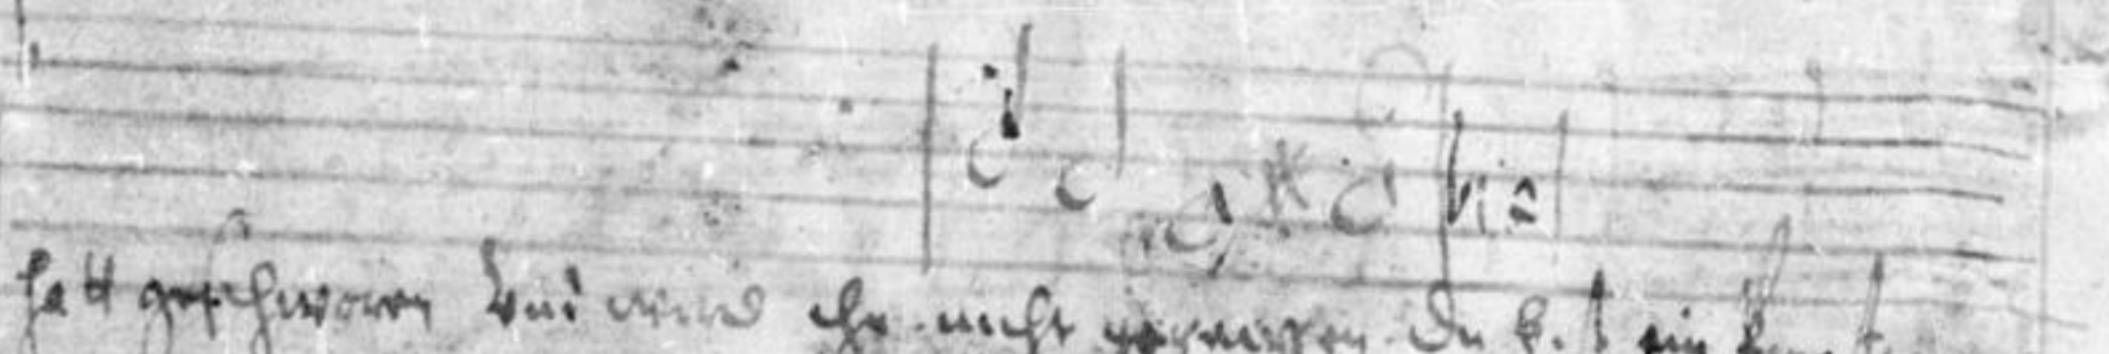 hatt geschworen Vnd wird ihn nicht gerewen. Du bist ein